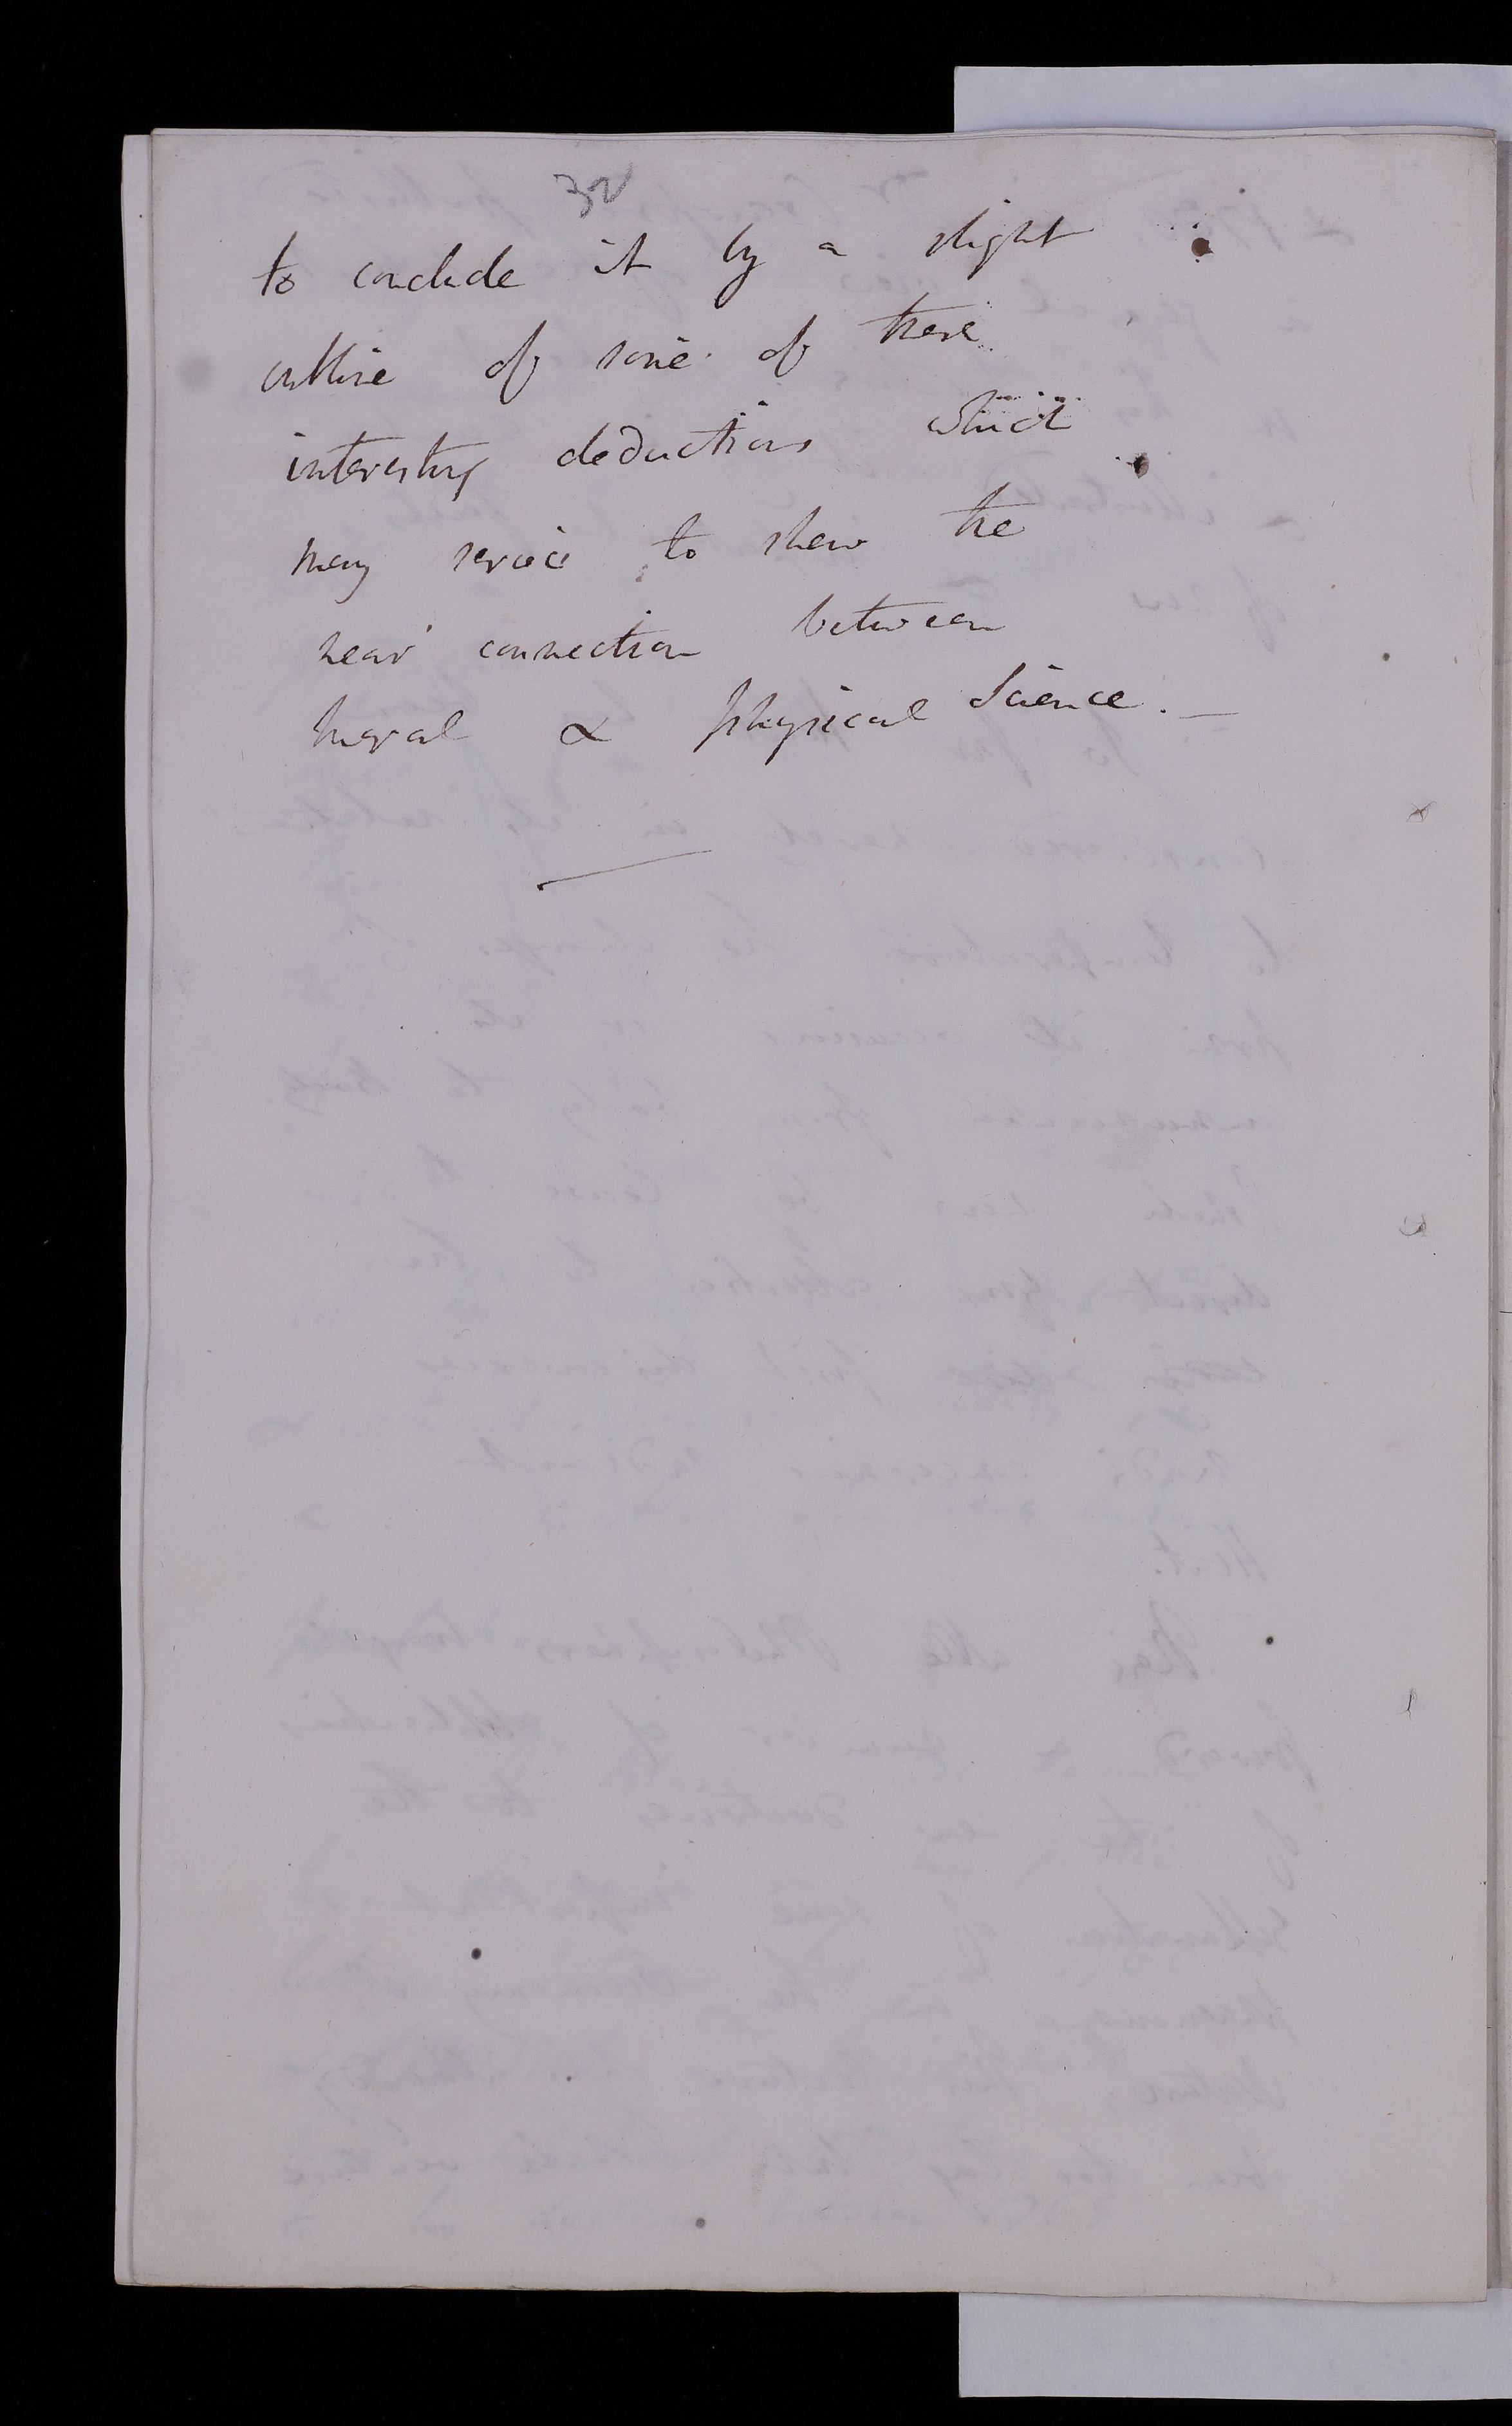 32
to conclude it by a slight
outline of some of these
interesting deductions which
may service to shew the
near connection between
moral & physical Science. —